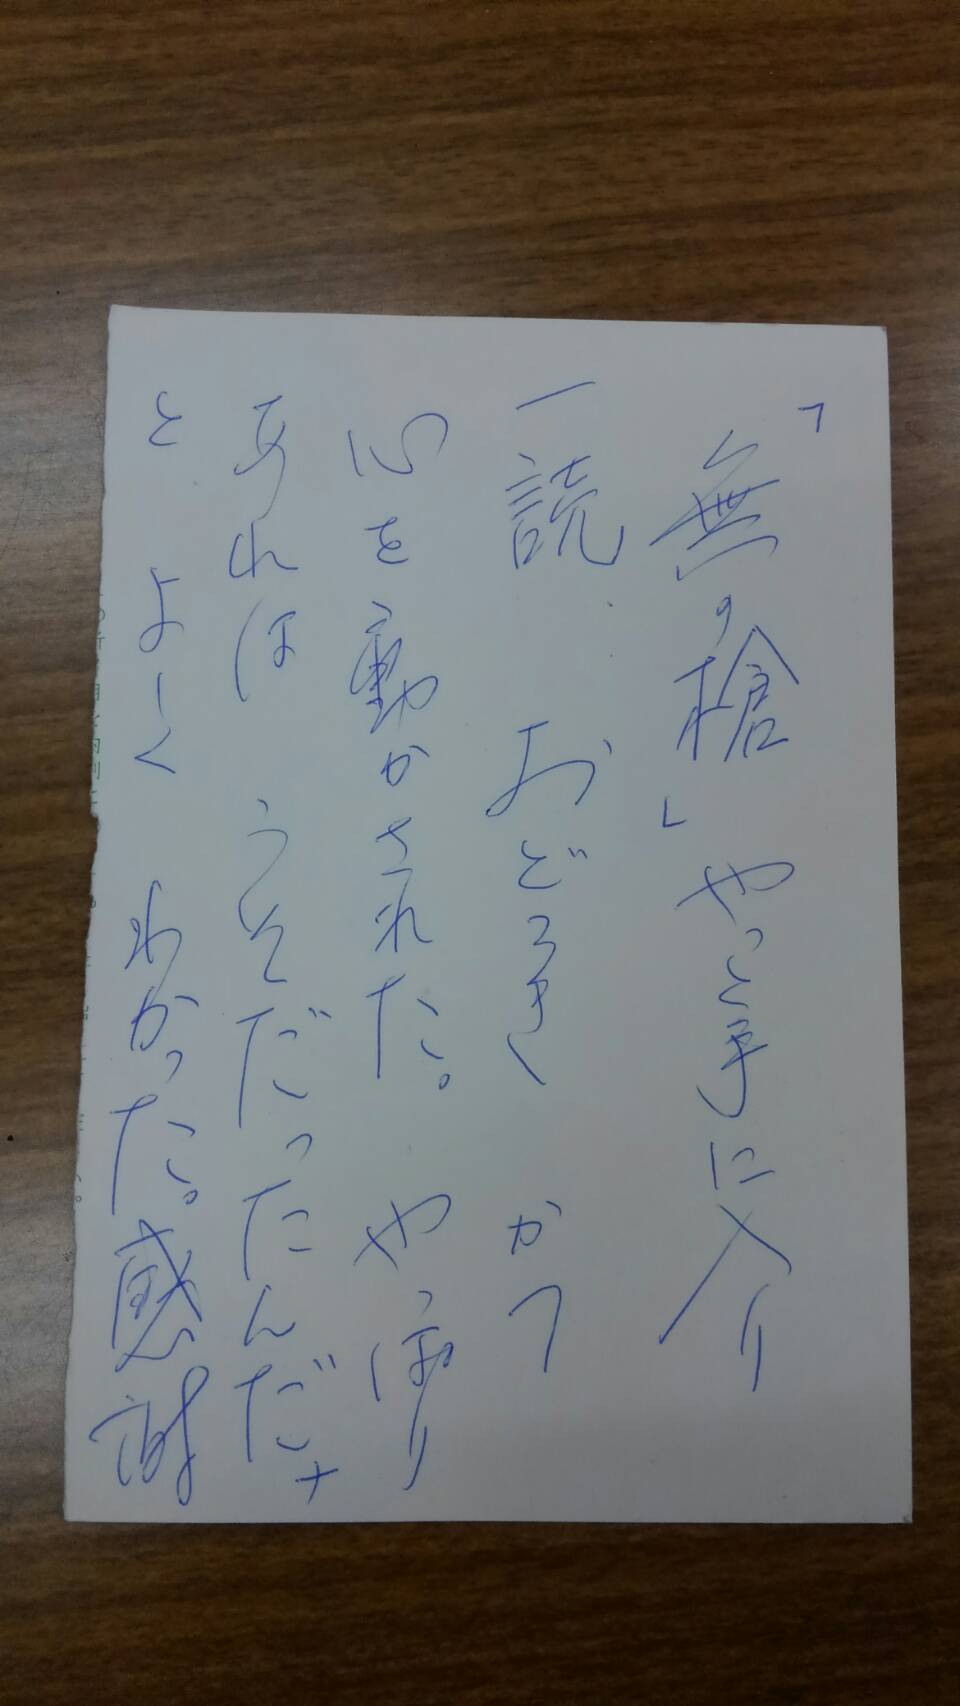 「無の槍」やっと手に入り
一読、おどろき かつ
心を動かされた。やっぱり
あれは うそだったんだナ
と よーく わかった。感謝